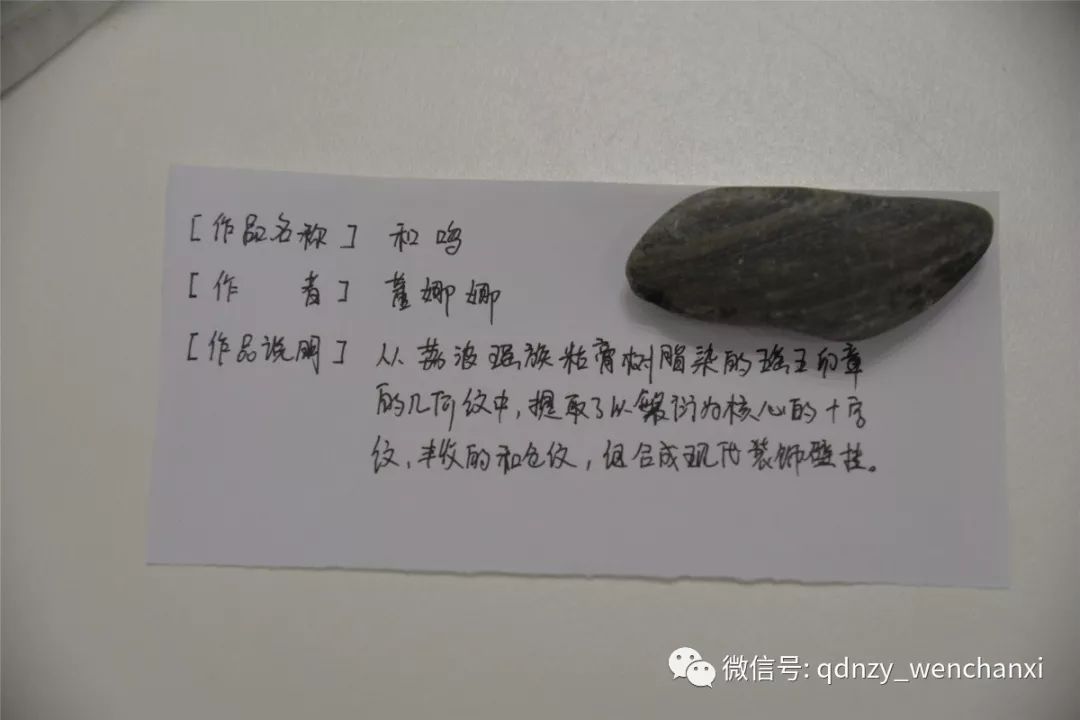 [作品名称] 和鸣
[作 者] 董娜娜
[作品说明] 从荔波瑶族粘膏树脂染的瑶王印章
的几何纹中,提取了以繁衍为核心的十字
纹,丰收的和仓纹,组合成现代装饰壁挂。
微信号: qdnzy_wenchanxi